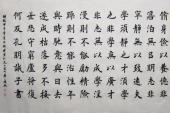 脩身儉以養德非
澹泊無以明志非
寧靜無以致遠夫
學須靜也才須學
也非學無以廣才
非志無以成學淫
慢則不能勵精險
躁則不能治性年
與時馳意與日去
遂成枯落多不接
世悲守窮廬將復
何及孔明誡子書